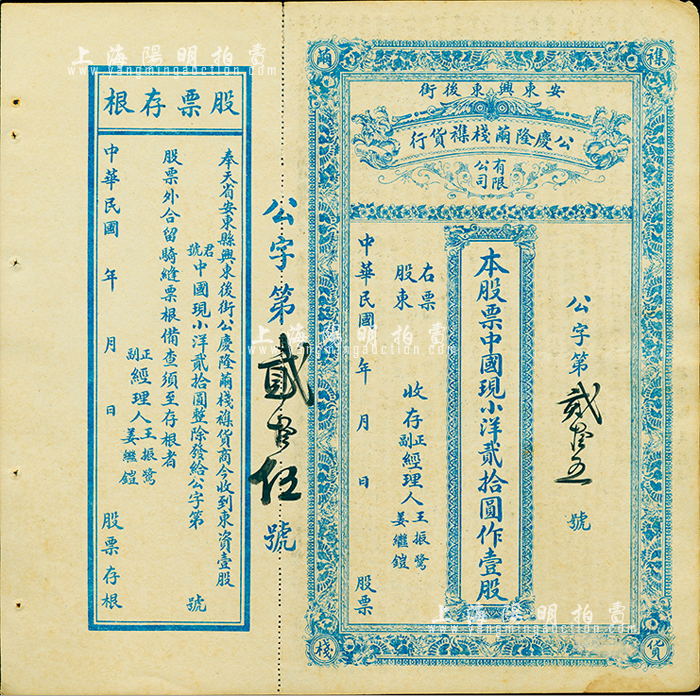 安東興東後街
公慶隆蔴棧襍貨行
有限公司
公字第貳拾五號
本股票中國現小洋貳拾圓作壹股
右票
股東
收存
正
副
經理人
王振鷺
姜繼鎧
中華民國 年 月 日 股票
襍
蔴
貨
棧
公字第貳拾伍號
股票存根
奉天省安東縣興東後街公慶隆蔴棧襍貨商今收到東資壹股
君
號
中國現小洋貳拾圓整除發給公字第 號
股票外合留騎縫票根備查須至存根者
正
副
經理人
王振鷺
姜繼鎧
中華民國 年 月 日 股票存根
上海陽明拍賣
www.yangmingauction.com
上海陽明拍賣
www.yangmingauction.com
上海陽明拍賣
www.yangmingauction.com